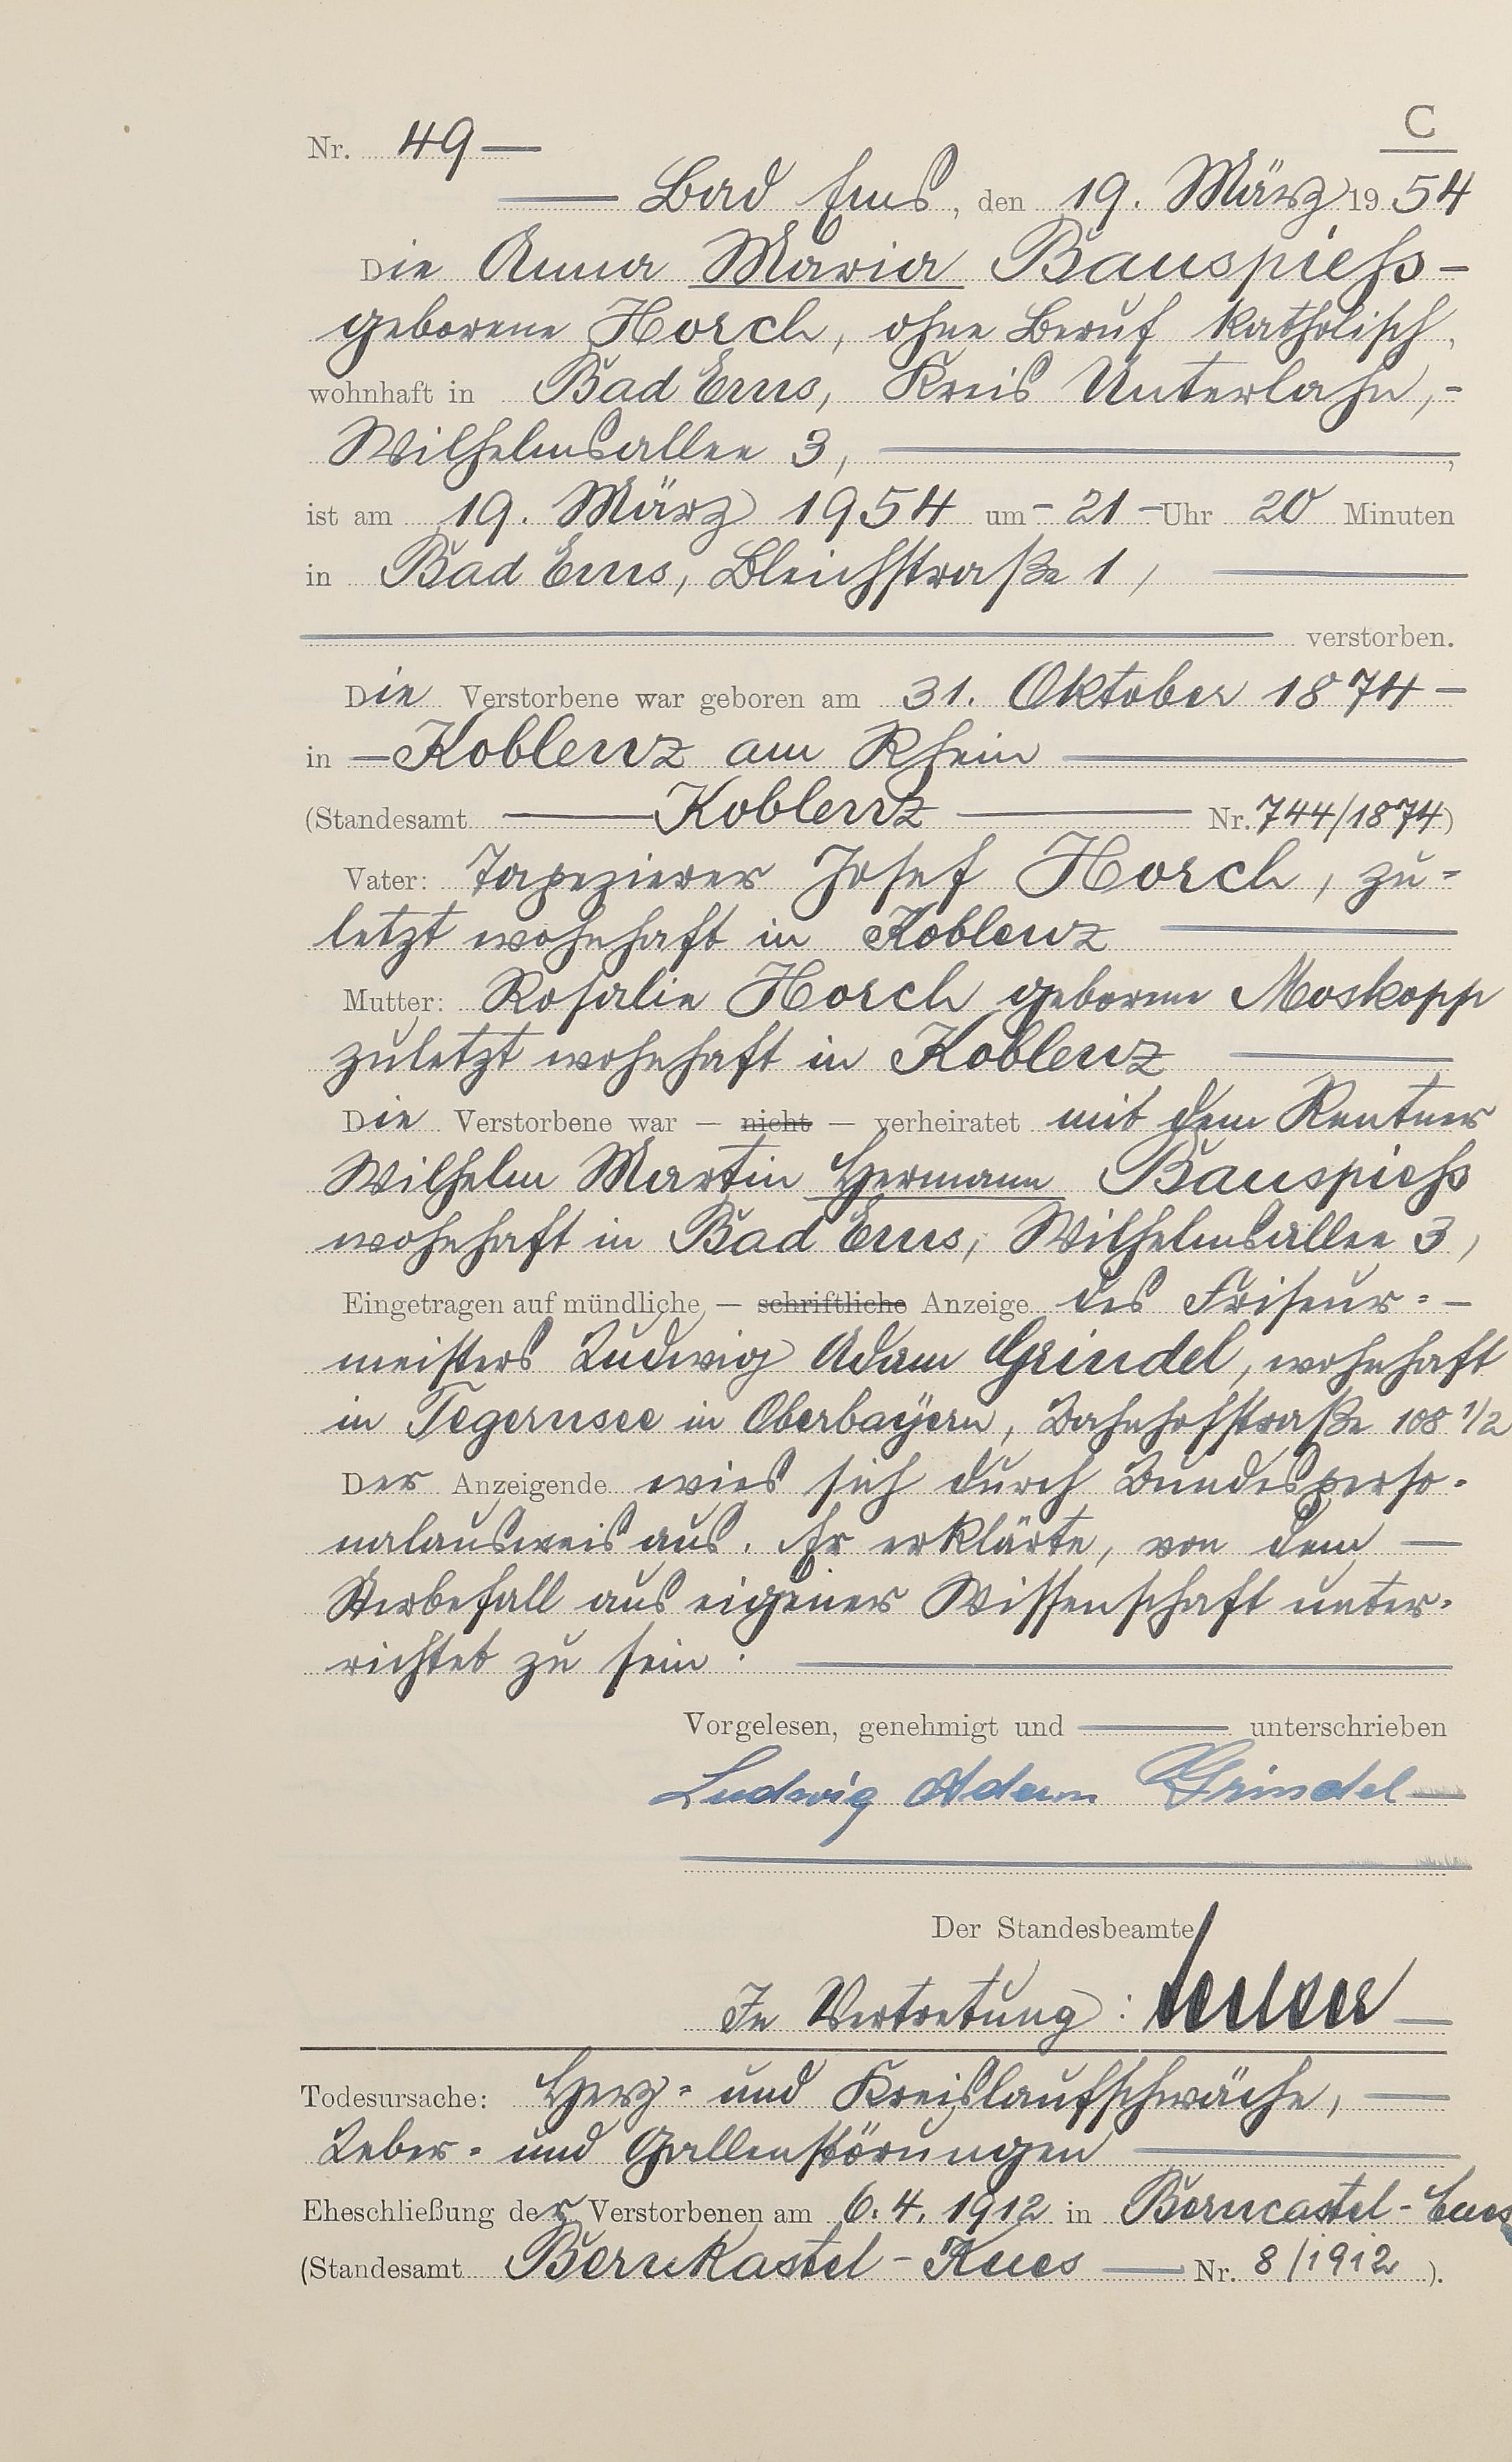 C
Nr. 49 —
— Bad Ems, den 19. März 1954
Die Anna Maria Bauspieß -
geborene Horch, ohne Beruf katholisch,
wohnhaft in Bad Ems, Kreis Unterlahn, -
Wilhelmsallee 3, —,
ist am 19. März 1954 um - 21 - Uhr 20 Minuten
in Bad Ems, Bleichstraße 1, —
— verstorben.
Die Verstorbene war geboren am 31. Oktober 1874 -
in - Koblenz am Rhein —
(Standesamt — Koblenz — Nr. 744/1874)
Vater: Tapezierer Josef Horch, zu-
letzt wohnhaft in Koblenz —
Mutter: Rosalie Horch geborene Moskopp
zuletzt wohnhaft in Koblenz —
Die Verstorbene war — nicht — verheiratet mit dem Rentner
Wilhelm Martin Hermann Bauspieß
wohnhaft in Bad Ems, Wilhelmsallee 3,
Eingetragen auf mündliche — schriftliche Anzeige des Friseur- —
meisters Ludwig Adam Grindel, wohnhaft
in Tegernsee in Oberbayern, Bahnhofstraße 108 1/2
Der Anzeigende wies sich durch Bundesperso-
nalausweis aus. Er erklärte, von dem —
Sterbefall aus eigener Wissenschaft unter-
richtet zu sein. —
Vorgelesen, genehmigt und — unterschrieben
Ludwig Adam Grindel —
Der Standesbeamte
In Vertretung: —
Todesursache: Herz- und Kreislaufschwäche, —
Leber- und Gallenstörungen —
Eheschließung der Verstorbenen am 6.4.1912 in Berncastel-Cues
(Standesamt Bernkastel-Kues — Nr. 8/1912).